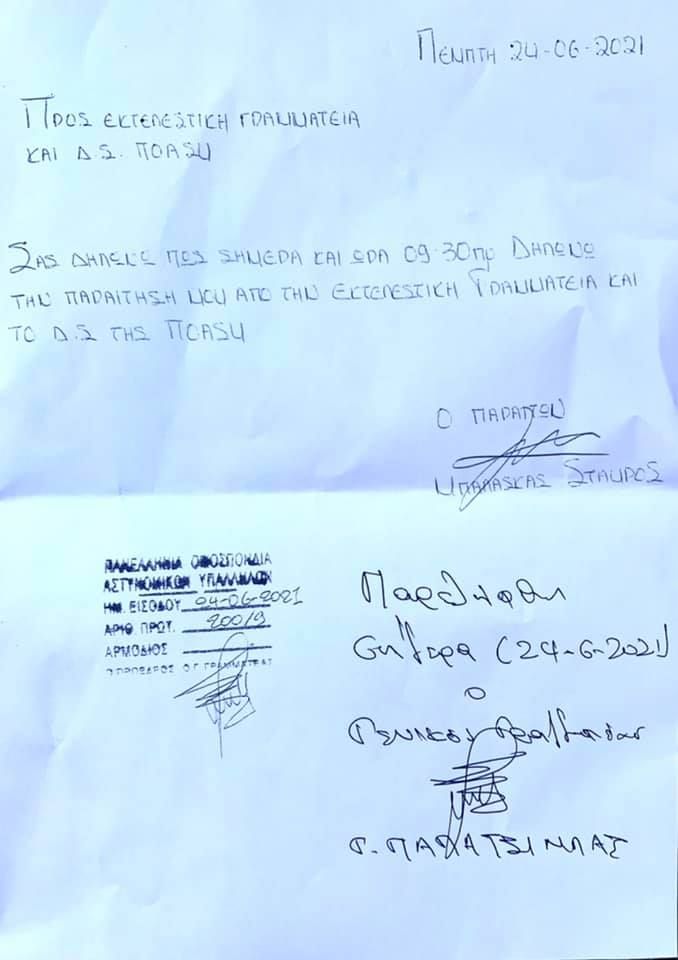 ΠΕΜΠΤΗ 24-06-2021
ΠΡΟΣ ΕΚΤΕΛΕΣΤΙΚΗ ΓΡΑΜΜΑΤΕΙΑ
ΚΑΙ Δ.Σ. ΠΟΑΣΥ
ΣΑΣ ΔΗΛΩΝΩ ΠΩΣ ΣΗΜΕΡΑ ΚΑΙ ΩΡΑ 09:30πμ ΔΗΛΩΝΩ
ΤΗΝ ΠΑΡΑΙΤΗΣΗ ΜΟΥ ΑΠΟ ΤΗΝ ΕΚΤΕΛΕΣΤΙΚΗ ΓΡΑΜΜΑΤΕΙΑ ΚΑΙ
ΤΟ Δ.Σ ΤΗΣ ΠΟΑΣΥ
Ο ΠΑΡΑΙΤΩΝ
ΜΠΑΛΑΣΚΑΣ ΣΤΑΥΡΟΣ
ΠΑΝΕΛΛΗΝΙΑ ΟΜΟΣΠΟΝΔΙΑ
ΑΣΤΥΝΟΜΙΚΩΝ ΥΠΑΛΛΗΛΩΝ
ΗΜ. ΕΙΣΟΔΟΥ 24-06-2021
ΑΡΙΘ ΠΡΩΤ. 200/9
ΑΡΜΟΔΙΟΣ
Ο ΠΡΟΕΔΡΟΣ Ο Γ. ΓΡΑΜΜΑΤΕΑΣ
Παρελήφθη
σήμερα (24-6-2021)
ο
Γενικός Γραμματέας
Γ. ΠΑΠΑΤΣΙΜΠΑΣ